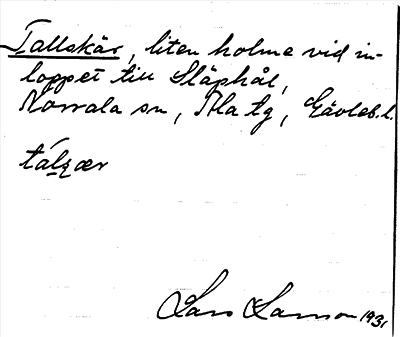 Tallskär, liten holme vid in-
loppet till Släphål,
Norrala sn, Ala tg, Gävleb. l.
tálʂær
Lars Larsson 1931